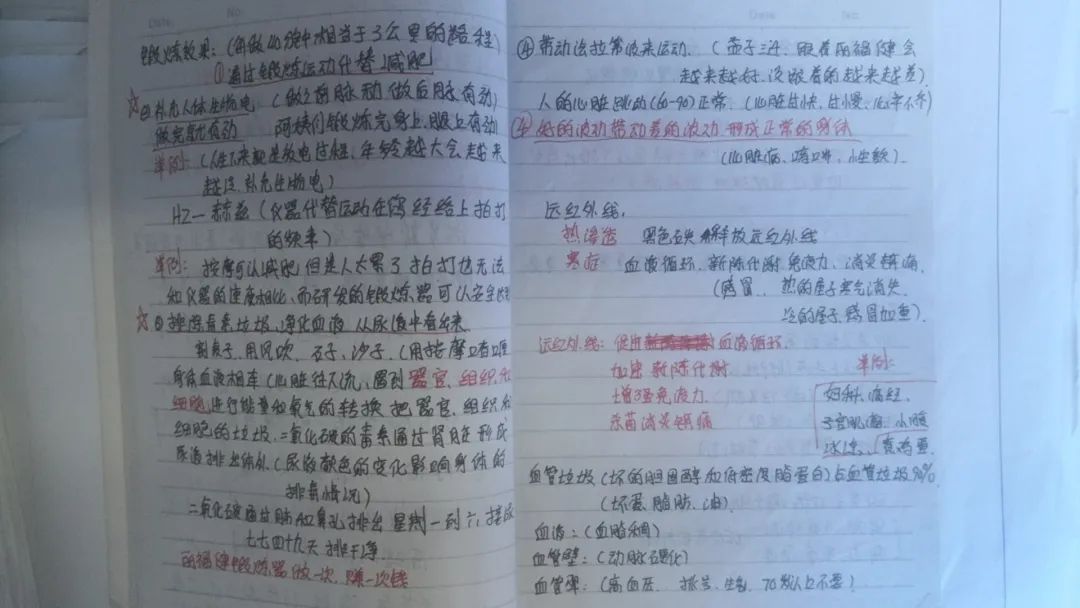 Date. No.
锻炼效果：（每做40分钟相当于3公里的路程）
①通过锻炼运动代替减肥
☆②补充人体生物电：（做之前脉动 做后脉有动）
做完就有动 阿姨们锻炼完身上、腿上有动
举例：（人生下来就是放电过程，年龄越大会越来
越没，补充生物电）
HZ—赫兹（仪器代替运动在 经络上拍打
的频率）
举例：按摩可以减肥 但是人太累了 拍打也无法
和仪器的速度相比，而研发的锻炼器可以安全
☆③排除毒素垃圾，净化血液 从尿液中看出来
桌子，用风吹，石子，沙子。（用按摩
身体血液相连（心脏往下流，遇到器官、组织和
细胞进行能量和氧气的转换 把器官，组织和
细胞的垃圾，二氧化碳的毒素通过肾脏形成
尿液排出体外（尿液颜色的变化影响身体的
排毒情况）
二氧化碳通过肺和鼻孔排出 星期一到六 接
七七四十九天 排干净
福健锻炼器做一次，赚一次钱
Date No.
④带动法拉常波来运动。（孟子三迁，跟着 福健会
越来越好，没跟着的越来越差）
人的心脏跳动（60-90）正常。（心脏过快，过慢，心率不齐）
④好的波动带动差的波动 形成正常的身体
（心脏病、哮喘、 ）.
远红外线，
热渗透 黑色石头 解放远红外线
寒症 血液循环，新陈代谢 免疫力，消炎镇痛，
（感冒，热的屋子寒气消失，
冷的屋子，感冒加重）.
远红外线：促进 血液循环.
加速新陈代谢 举例：
增强免疫力 妇科，痛经，
杀菌消炎镇痛 子宫肌瘤，小腹
冰凉，煮鸡蛋
血管垃圾（坏的胆固醇和低密度脂蛋白）占血管垃圾90%.
（坏蛋，脂肪、油）.
血液：（血脂稠）
血管壁：（动脉硬化）
血管 ：（高血压， ，生气，70岁以上不要）